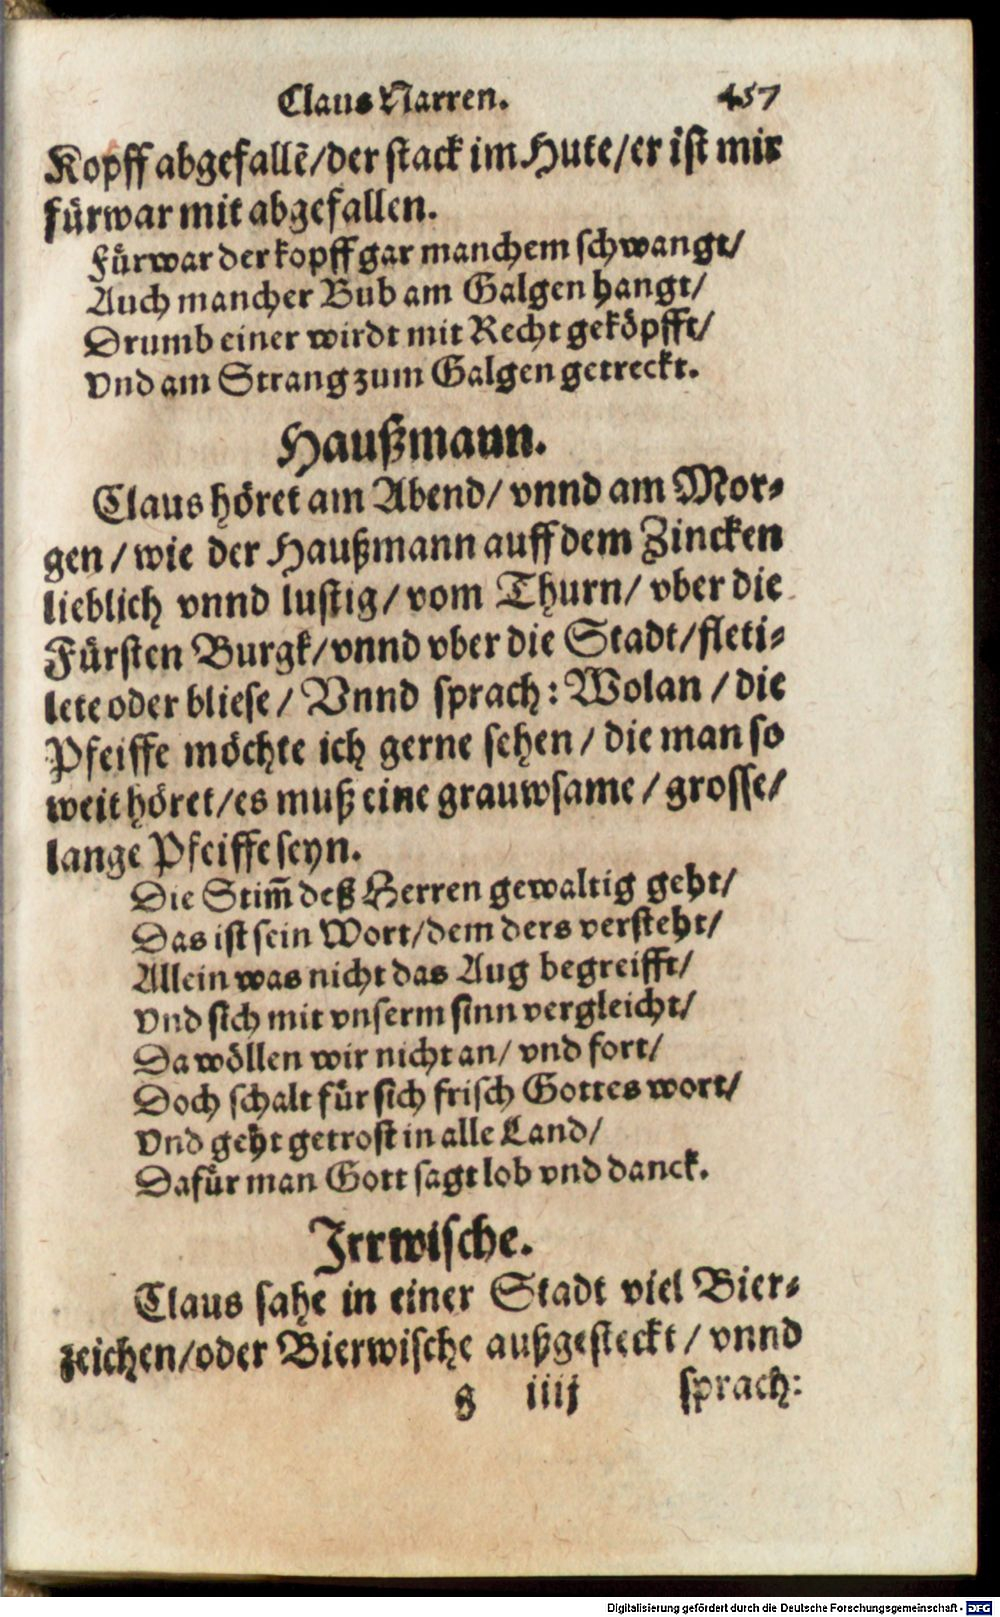 Claus Narren. 457
Kopff abgefallẽ/der stack im Hute/er ist mir
fürwar mit abgefallen.
Fürwar der kopff gar manchem schwangt/
Auch mancher Bub am Galgen hangt/
Drumb einer wirdt mit Recht geköpfft/
Vnd am Strang zum Galgen getreckt.
Haußmann.
Claus höret am Abend/ vnnd am Mor-
gen / wie der Haußmann auff dem Zincken
lieblich vnnd lustig/ vom Thurn/ vber die
Fürsten Burgk/vnnd vber die Stadt/fleti-
lete oder bliese/ Vnnd sprach: Wolan / die
Pfeiffe möchte ich gerne sehen/ die man so
weit höret/es muß eine grauwsame / grosse/
lange Pfeiffe seyn.
Die Stim̃ deß Herren gewaltig geht/
Das ist sein Wort/dem ders versteht/
Allein was nicht das Aug begreifft/
Vnd sich mit vnserm sinn vergleicht/
Da wöllen wir nicht an/ vnd fort/
Doch schalt für sich frisch Gottes wort/
Vnd geht getrost in alle Land/
Dafür man Gott sagt lob vnd danck.
Irrwische.
Claus sahe in einer Stadt viel Bier-
zeichen/oder Bierwische außgesteckt/ vnnd
g iiij sprach:
Digitalisierung gefördert durch die Deutsche Forschungsgemeinschaft - DFG